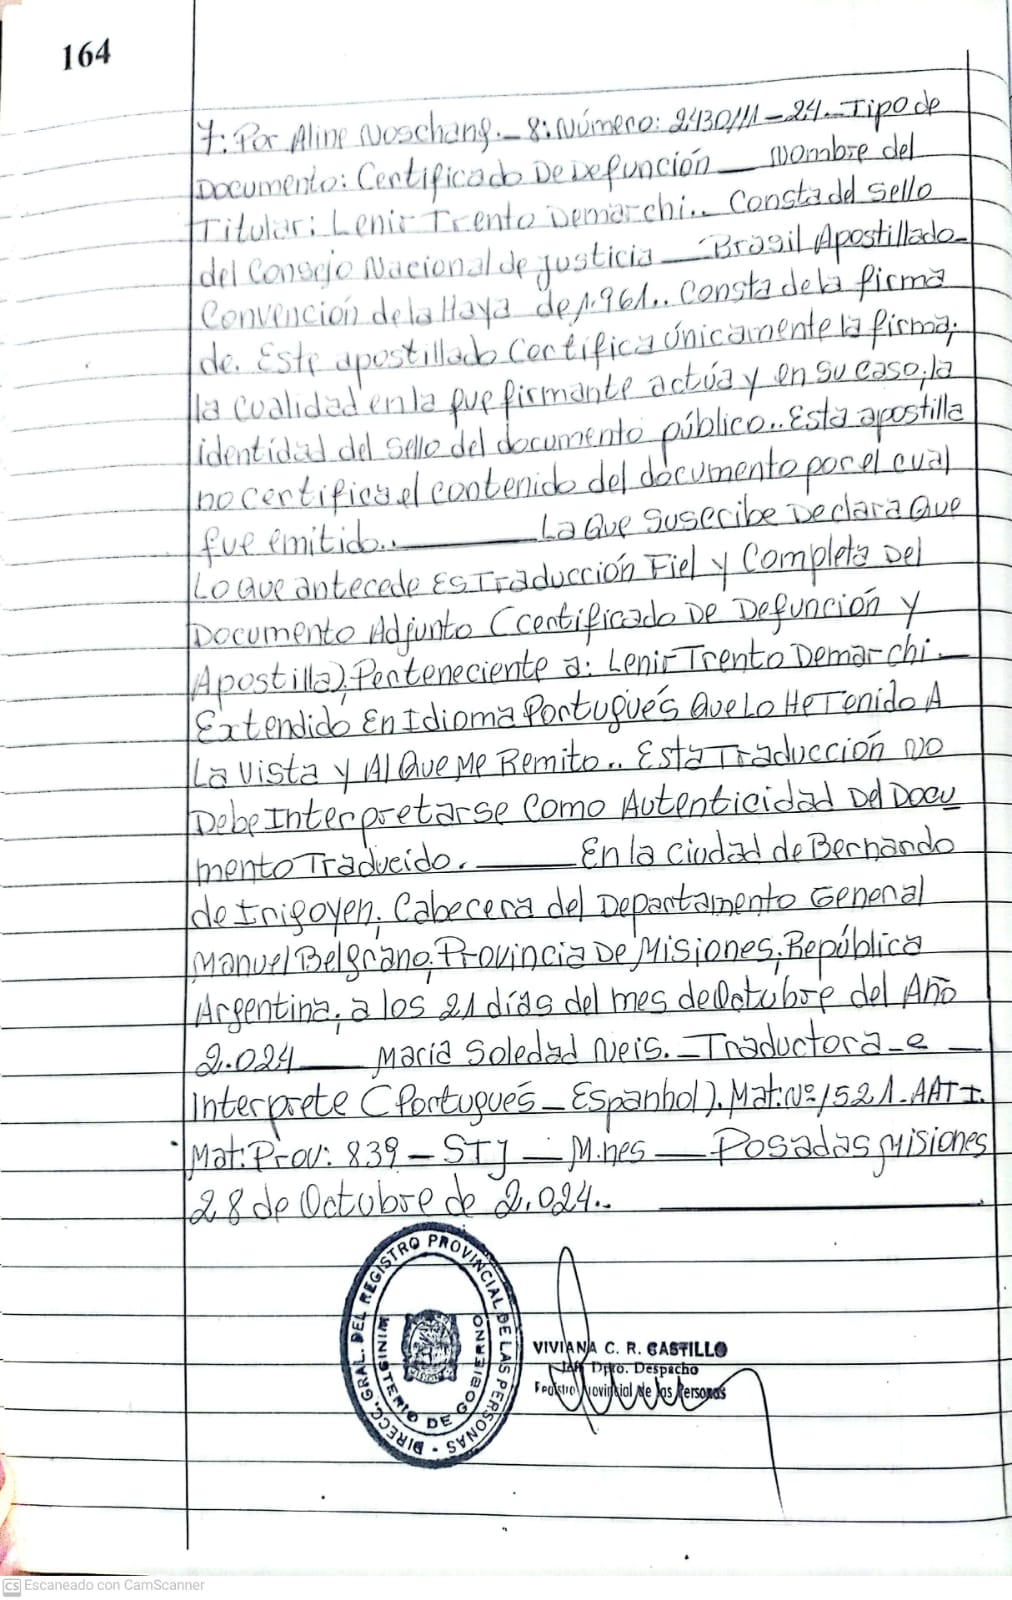 164
7: Por Aline Noschang._ 8: Número: 2430/11-24._ Tipo de
Documento: Certificado De Defunción ___ Nombre del
Titular: Lenir Trento Demarchi.. Consta del sello
del Consejo Nacional de justicia ___ Brasil Apostillado_
Convención de la Haya de 1.961.. Consta de la firma
de. Este apostillado Certifica únicamente la firma,
la cualidad en la que firmante actúa y en su caso, la
identidad del sello del documento público.. Esta apostilla
no certifica el contenido del documento por el cual
fue emitido.. ______ La Que Suscribe Declara Que
Lo Que antecede Es Traducción Fiel y Completa Del
Documento Adjunto (Certificado De Defunción y
Apostilla), Perteneciente a: Lenir Trento Demarchi._
Extendido En Idioma Portugués Que Lo He Tenido A
La Vista y Al Que Me Remito.. Esta Traducción No
Debe Interpretarse Como Autenticidad Del Docu
mento Traducido. ______ En la Ciudad de Bernardo
de Irigoyen, Cabecera del Departamento General
Manuel Belgrano, Provincia De Misiones, República
Argentina, a los 21 días del mes de Octubre del Año
2.024 ___ Maria Soledad Neis._ Traductora _ e _
Interprete (Portugués _ Espanhol). Mat: Nº 1521-AATI.
Mat: Prov: 839 _ STJ _ M.nes ___ Posadas Misiones
28 de Octubre de 2.024.. ______
DIRECC. GRAL. DEL REGISTRO PROVINCIAL DE LAS PERSONAS -
MINISTERIO DE GOBIERNO
VIVIANA C. R. CASTILLO
Dpto. Despacho
Registro Provincial de las Personas
CS Escaneado con CamScanner